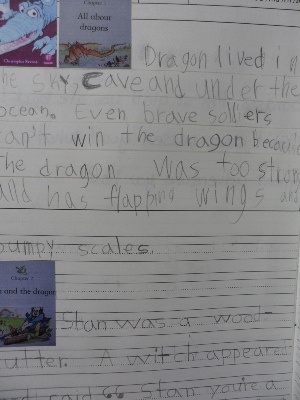 Christopher Russell
Chapter 1
All about
dragons
Dragon lived in
the sky, Cave and under the
ocean. Even brave sollers
can't win the dragon because
the dragon was too strong
and has flapping wings and
bumpy scales.
Chapter 2
and the dragon
Stan was a wood-
cutter. A witch appeared
and said "Stan you're a